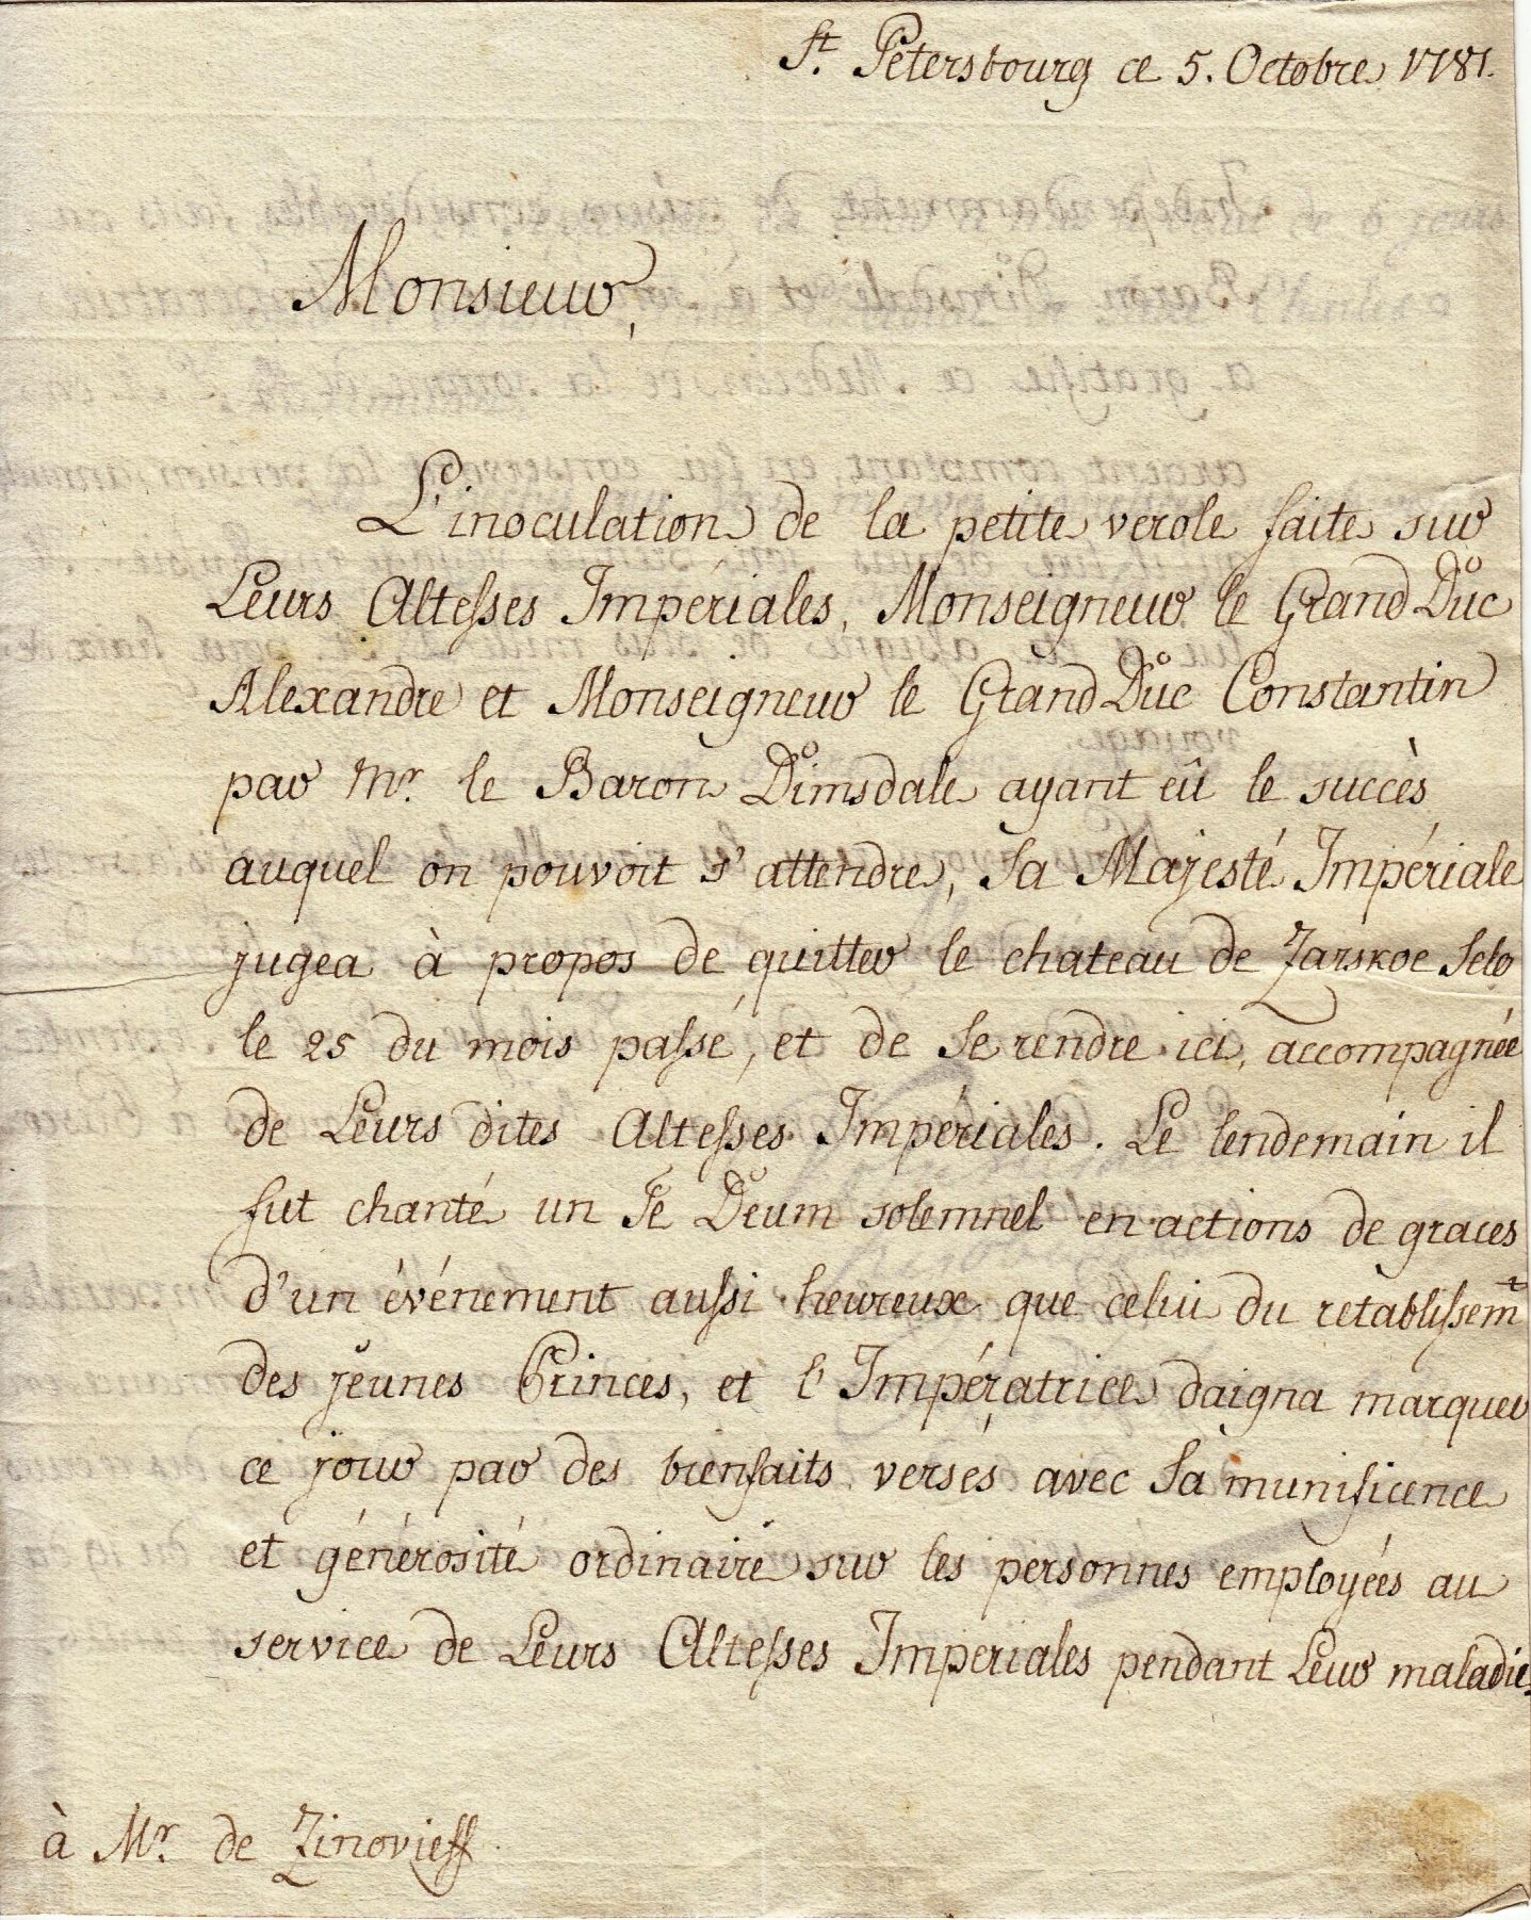 St. Petersbourg ce 5. Octobre 1781.
Monsieur,
L'inoculation de la petite verole faite sur
Leurs Altesses Impériales, Monseigneur le Grand Duc
Alexandre et Monseigneur le Grand Duc Constantin
par Mr. le Baron Dimsdale ayant eû le succès
auquel on pouvoit s'attendre, Sa Majesté Impériale
jugea à propos de quitter le chateau de Zarskoe Selo
le 25 du mois passé, et de Se rendre ici, accompagnée
de Leurs dites Altesses Impériales. Le lendemain il
fut chanté un Te Deum solemnel en actions de graces
d'un événement aussi heureux que celui du retablissemt
des jeunes Princes, et l'Impératrice daigna marquer
ce jour par des bienfaits versés avec Sa munificence
et générosité ordinaire sur les personnes employées au
service de Leurs Altesses Imperiales pendant Leur maladie.
à Mr. de Zinovieff